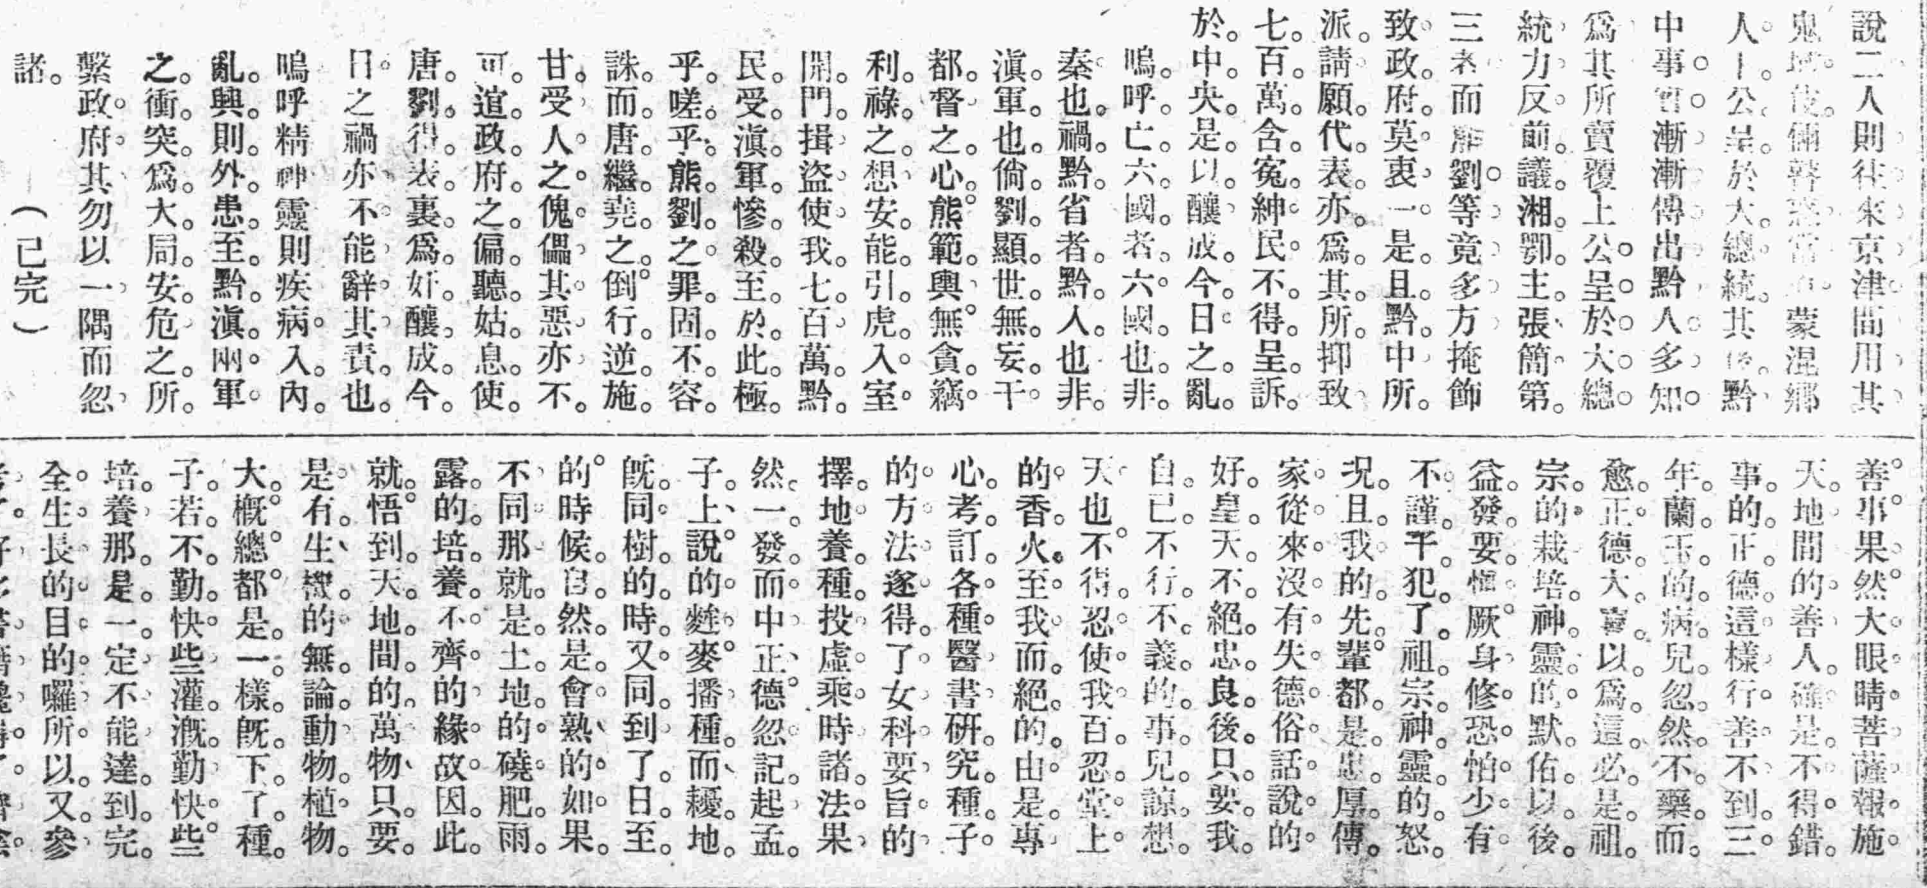 說二人則往來京津間用其
鬼蜮伎倆瞽惑當道蒙混鄉
人上公呈於大總統其黔
中事實漸漸傳出黔人多知
爲其所賣覆上公呈於大總
統力反前議湘鄂主張簡第
三者而劉等竟多方掩飾
致政府莫衷一是且黔中所
派請願代表亦爲其所抑致
七百萬含冤紳民不得呈訴
於中央是以釀成今日之亂
嗚呼亡六國者六國也非
秦也禍黔省者黔人也非
滇軍也倘劉顯世無妄干
都督之心熊範輿無貪竊
利祿之想安能引虎入室
開門揖盜使我七百萬黔
民受滇軍慘殺至於此極
乎嗟乎熊劉之罪固不容
誅而唐繼堯之倒行逆施
甘受人之傀儡其惡亦不
可逭政府之偏聽姑息使
唐劉得表裏爲奸釀成今
日之禍亦不能辭其責也
嗚呼精神靈則疾病入內
亂興則外患至黔滇兩軍
之衝突爲大局安危之所
繫政府其勿以一隅而忽
諸 (已完)
善事果然大眼睛菩薩報施
天地間的善人確是不得錯
事的正德這樣行善不到三
年蘭玉的病兒忽然不藥而
愈正德大喜以爲這必是祖
宗的栽培神靈的默佑以後
益發要惟厥身修恐怕少有
不謹干犯了祖宗神靈的怒
況且我的先輩都是忠厚傳
家從來沒有失德俗話說的
好皇天不絕忠良後只要我
自己不行不義的事兒諒想
天也不得忍使我百忍堂上
的香火至我而絕的由是專
心考訂各種醫書研究種子
的方法遂得了女科要旨的
擇地養種投虛乘時諸法果
然一發而中正德忽記起孟
子上說的麰麥播種而耰地
旣同樹的時又同到了日至
的時候自然是會熟的如果
不同那就是土地的磽肥雨
露的培養不齊的緣故因此
就悟到天地間的萬物只要
是有生機的無論動物植物
大概總都是一樣旣下了種
子若不勤快些灌漑勤快些
培養那是一定不能達到完
全生長的目的囉所以又參